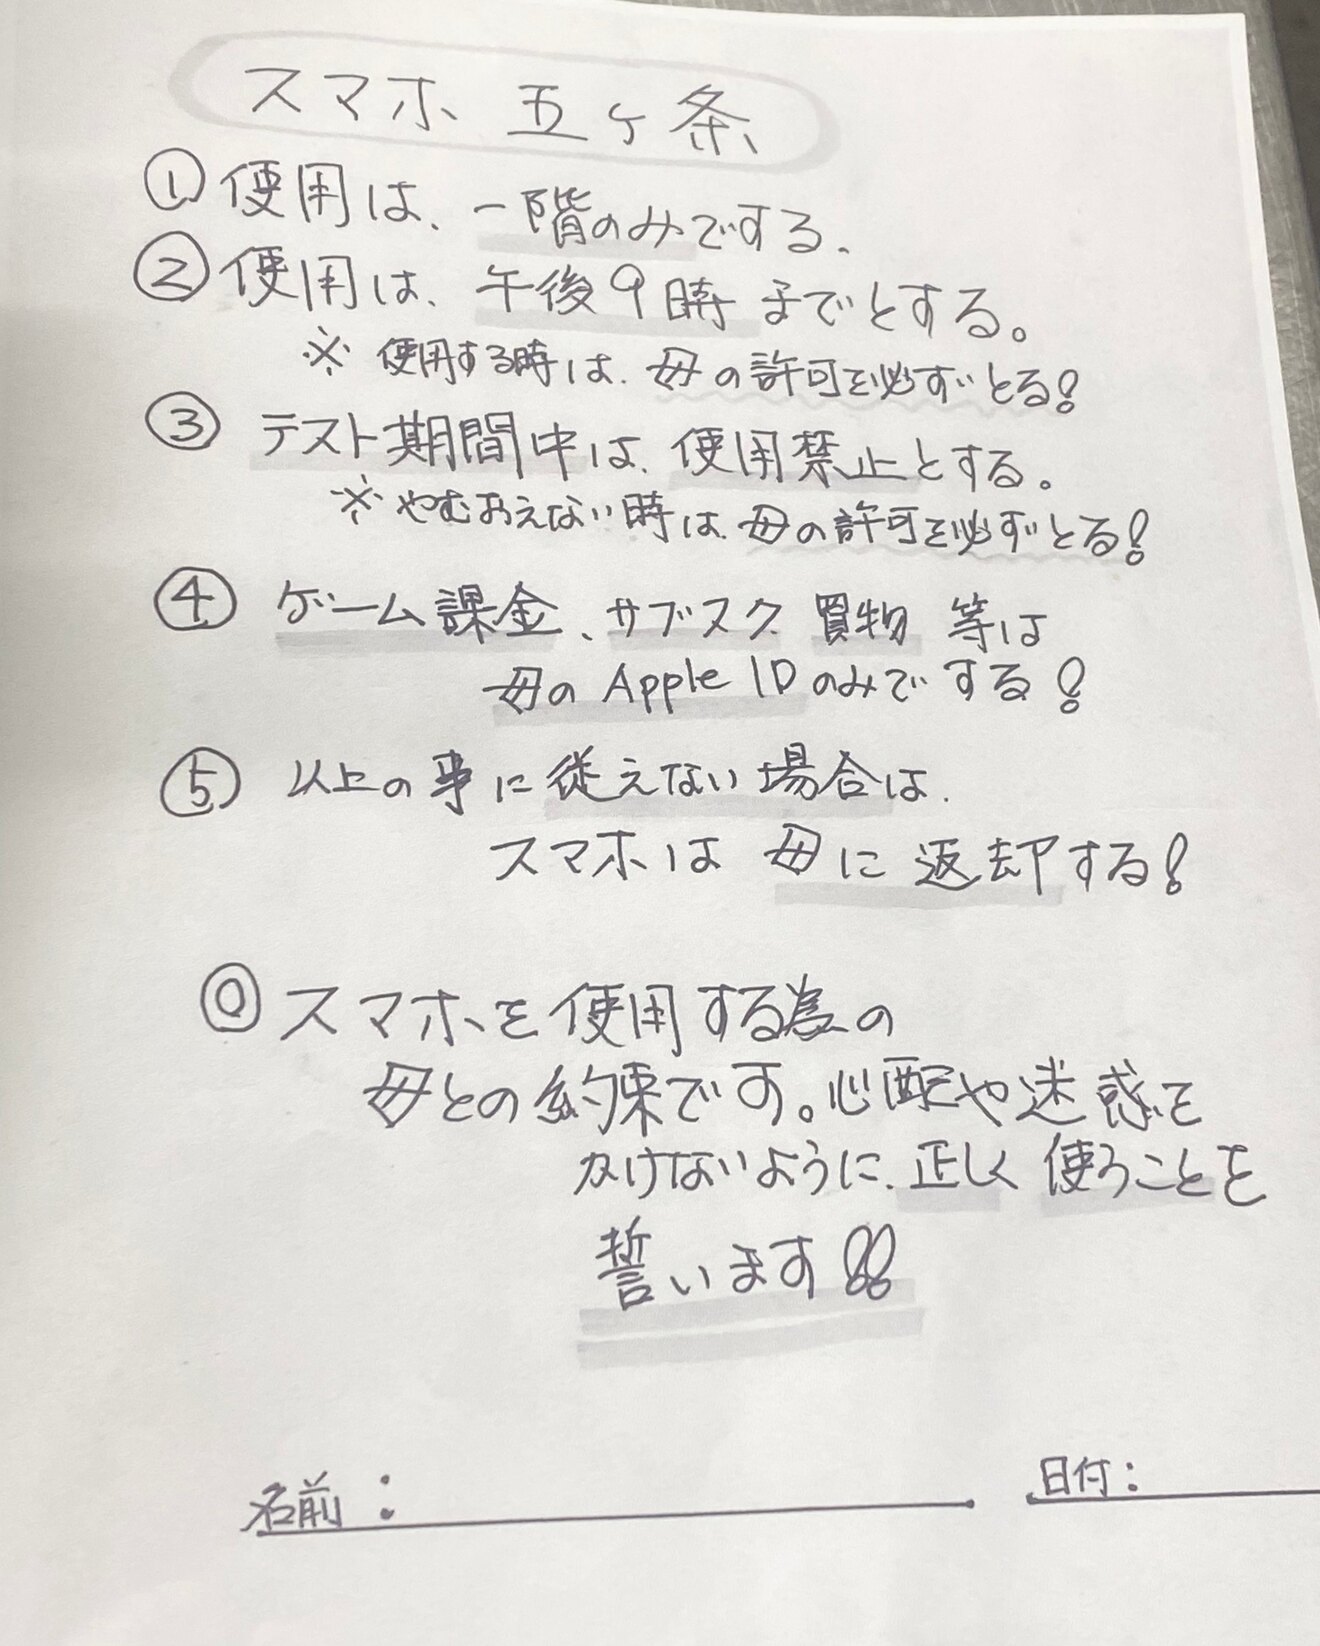 スマホ 五ヶ条
① 使用は、一階のみでする、
② 使用は、午後9時までとする。
※ 使用する時は、母の許可を必ずとる!
③ テスト期間中は、使用禁止とする。
※ やむおえない時は、母の許可を必ずとる!
④ ゲーム課金、サブスク 買物 等は
母の Apple ID のみでする!
⑤ 以上の事に従えない場合は、
スマホは 母に返却する!
◎ スマホを使用する為の
母との約束です。心配や迷惑を
かけないように、正しく使うことを
誓います!!
名前:
日付: